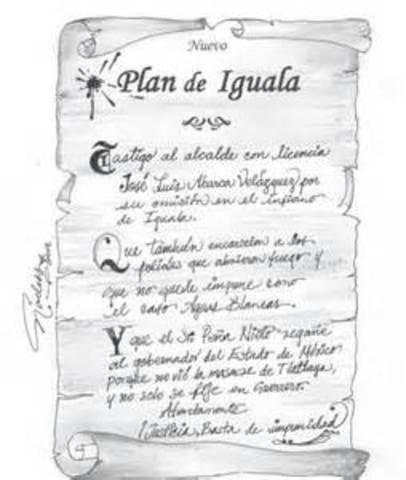 Nuevo
Plan de Iguala
Castigo al alcalde con licencia
José Luis Abarca Velázquez por
su omisión en el infierno
de Iguala.
Que también encarcelen a los
policías que abrieron fuego y
que no quede impune como
el caso Aguas Blancas.
Y que el Sr Peña Nieto regañe
al gobernador del Estado de México
porque no vió la masacre de Tlatlaya,
y no solo se fije en Guerrero.
Atentamente
¡Justicia, Basta de impunidad